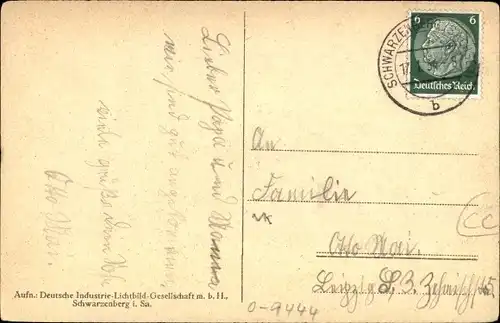 Lieber Papa und Mama,
wir sind gut angekommen,
viele Grüße von
Otto Mai.
Aufn.: Deutsche Industrie-Lichtbild-Gesellschaft m. b. H.,
Schwarzenberg i. Sa.
6 6
Deutsches Reich
b
An
Familie
Otto Mai.
Leipzig S. 3.
0-9444
CC